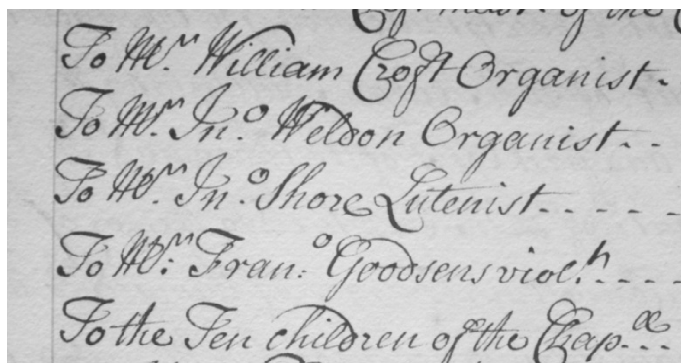 of the
To Mr. William Croft Organist.
To Mr. Jno. Weldon Organist..
To Mr. Jno. Shore Lutenist.....
To Mr: Frano: Goodsens violst....
To the Ten children of the Chap.ll..